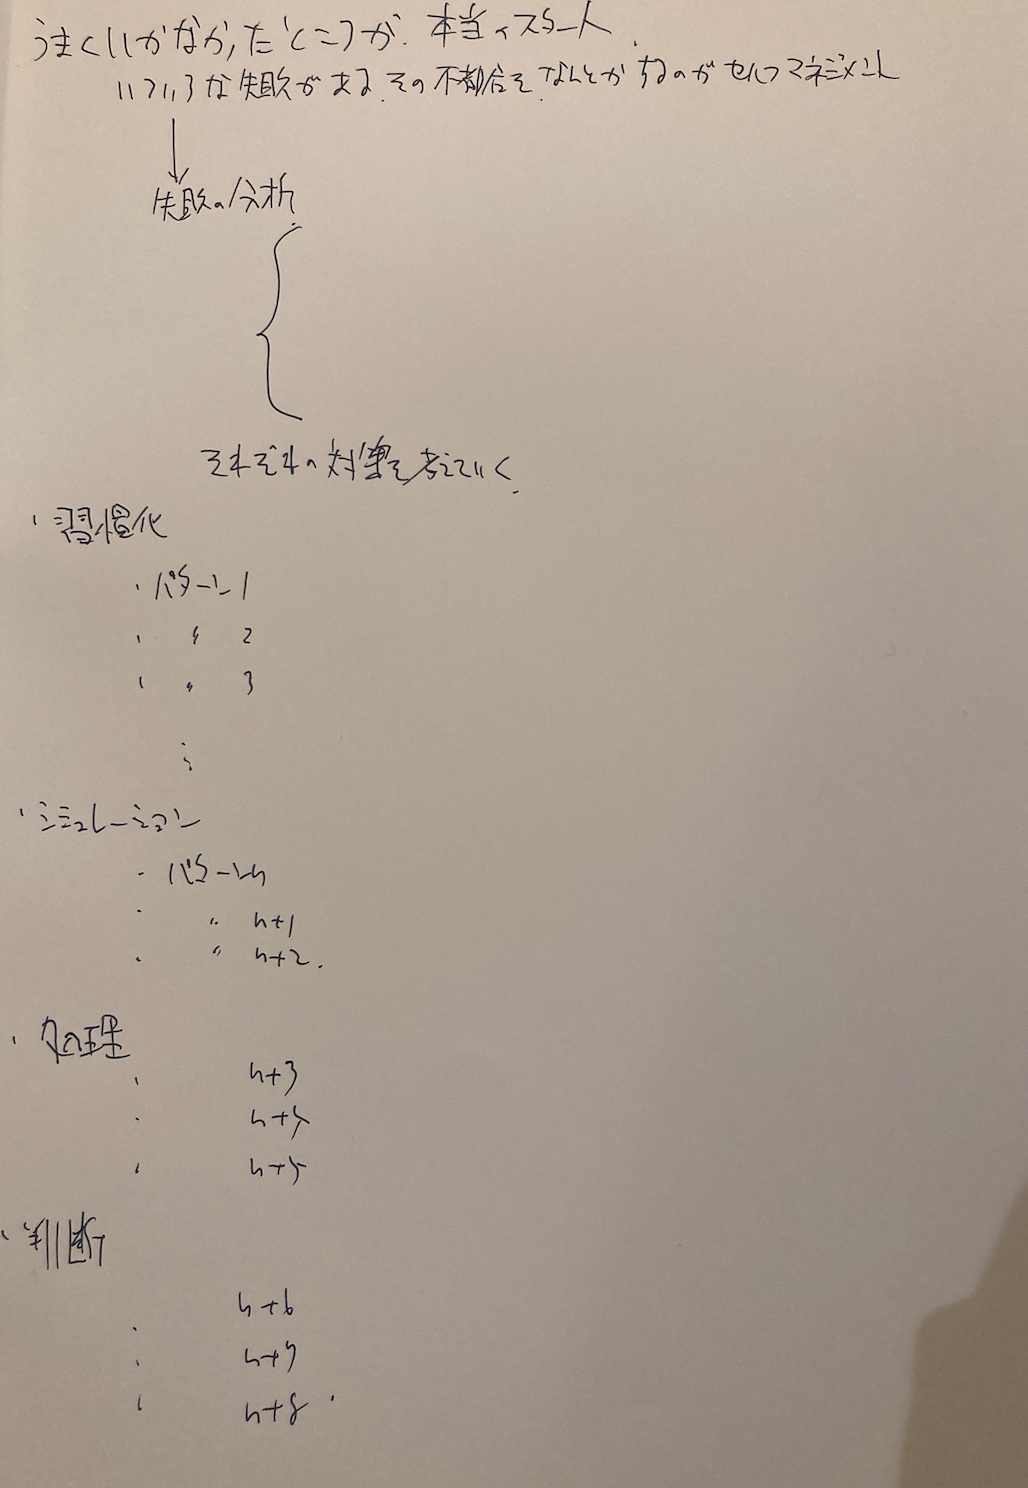 うまくいかなかったところが、本当のスタート.
いろいろな失敗がある。その不都合を、なんとかするのがセルフマネジメント
↓
失敗の分析
それぞれの対策を考えていく.
・習慣化
・パターン1
・ 〃 2
・ 〃 3
⋮
・シミュレーション
・パターンn
・ 〃 n+1
・ 〃 n+2.
・処理
・ n+3
・ n+4
・ n+5
・判断
・ n+6
・ n+7
・ n+8